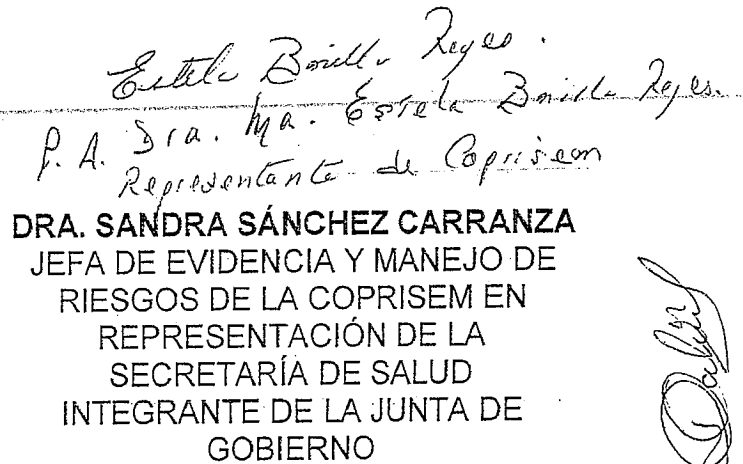 Estela Bonilla Reyes.
P.A. Dra. Ma. Estela Bonilla Reyes.
Representante de Coprisem
DRA. SANDRA SÁNCHEZ CARRANZA
JEFA DE EVIDENCIA Y MANEJO DE
RIESGOS DE LA COPRISEM EN
REPRESENTACIÓN DE LA
SECRETARÍA DE SALUD
INTEGRANTE DE LA JUNTA DE
GOBIERNO